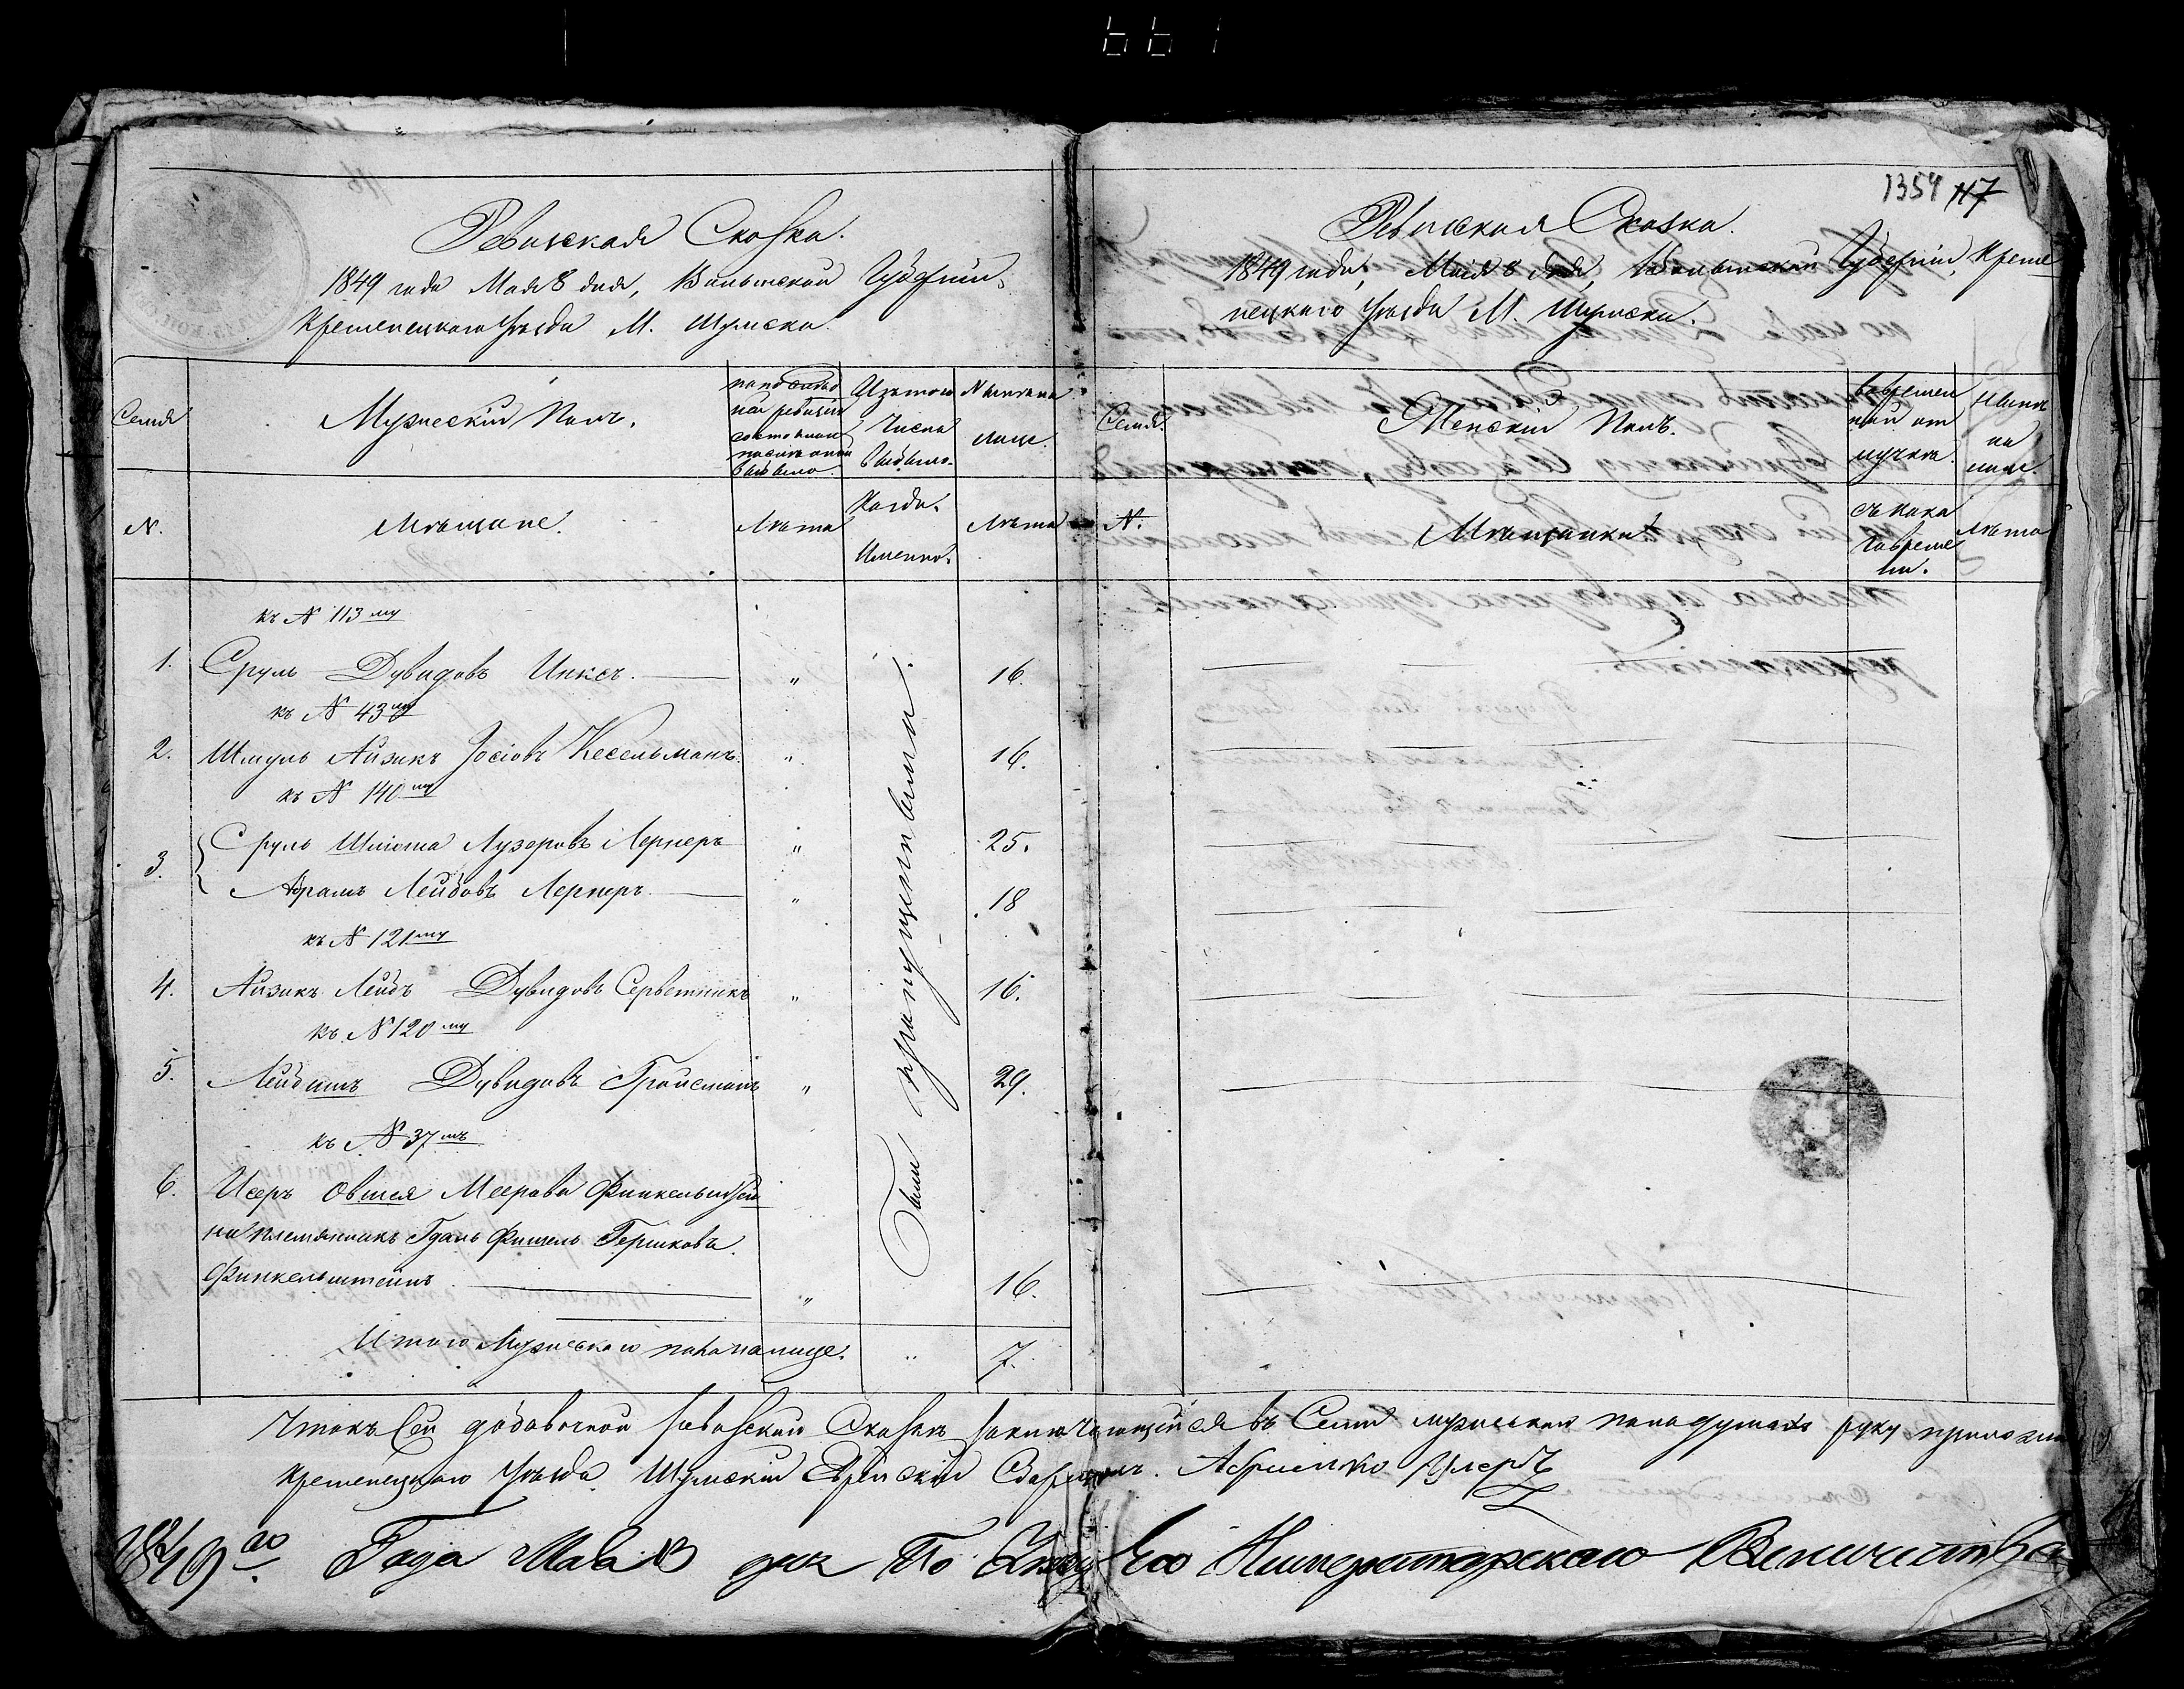 1354 117
Ревизская Сказка.
1849 года Мая 8 дня, Волынской Губернии,
Кременецкаго Уѣзда М. Шумска.
Семья
Мужескій Полъ.
по последней ревизіи состояло и после оной выбыло.
Изъ того Числа выбыло.
Нынѣ на лице.
N.
Мѣщане.
Лѣта
Когда Именно.
Лѣта
къ N 113му
1. Сруль Дувидовъ Инксъ. " 16.
къ N 43му
2. Шмуль Айзикъ Іосіовъ Кесельманъ. " 16.
къ N 140му
3. Сруль Шліома Лузеровъ Лернеръ " 25.
Абрамъ Лейбовъ Лернеръ. " 18
къ N 121му
4. Айзикъ Лейбъ Дувидовъ Серветникъ " 16.
къ N 120му
5. Лейбишъ Дувидовъ Гройсманъ " 29.
къ N 37мъ
6. Исеръ Овшея Меерова Финкельштей
на племянникъ Гдаль Фишель Гершковъ
Финкельштейнъ " 16.
Итого Мужескаго пола на лице. " 7.
Были пропущенными.
Ревизская Сказка.
1849 года, Маія 8 дня, Волынской Губерніи, Креме
нецкаго Уѣзда М. Шумска.
Семья
Женскій Полъ.
Во временной отлучкѣ.
Нынѣ на лице.
N.
Мѣщанки.
Съ какаго времени.
Лѣта
Къ Сей добавочной ревизской Сказкѣ заключающейся въ Семи мужеска пола душахъ руку приложилъ
Кременецкаго Уѣзда Шумскій Еврейскій Сборщикъ.
1849го Года Мая дня По Указу Его Императорскаго Величества